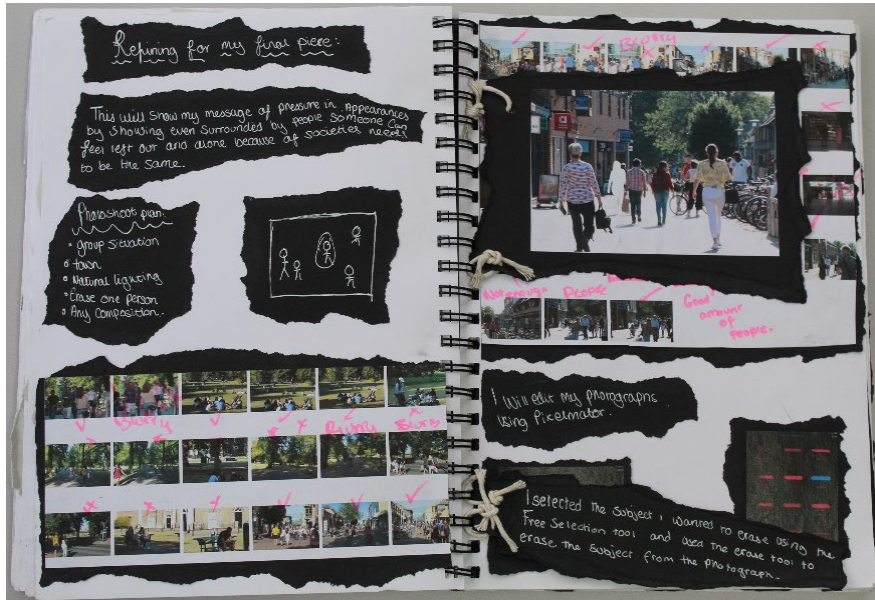 Refining for my final piece:
This will show my message of pressure in Appearances
by showing even surrounded by people someone can
feel left out and alone because of societies needs
to be the same.
Photoshoot plan:
• group situation
• town
• Natural lighting
• Erase one person
• Any composition.
Blurry
Blurry
Blurry
Blurry
Not enough
People
Good
amount
of
people.
I will edit my photographs
using Pixelmator.
I selected the subject I wanted to erase using the
Free Selection tool and used the erase tool to
erase the subject from the photograph.